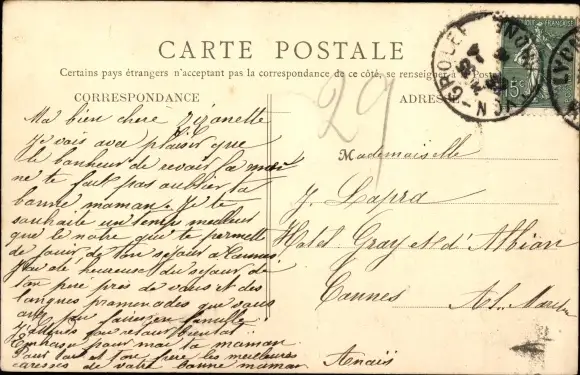 CARTE POSTALE
Certains pays étrangers n'acceptant pas la correspondance de ce côté, se renseigner à la Poste
CORRESPONDANCE
ADRESSE
29
Ma bien chere Zizonette
Je vois avec plaisir que
le bonheur de revoir la mer
ne te fait pas oublier ta
bonne maman. Je te
souhaite un temps meilleur
que le notre qui te permette
de jouir de ton sejour a Cannes.
J'ai ete heureuse du sejour de
ton pere près de vous et des
longues promenades que vous
avez pu faire en famille
J'attends son retour bientot
Embrasse pour moi ta maman
Pour toi et ton frere les meilleures
caresses de votre bonne maman
Anaïs
Mademoiselle
J. Lapra
Hotel Gray et d'Albion
Cannes
Al. Marit
GROLEE
RHONE
LYON
15c